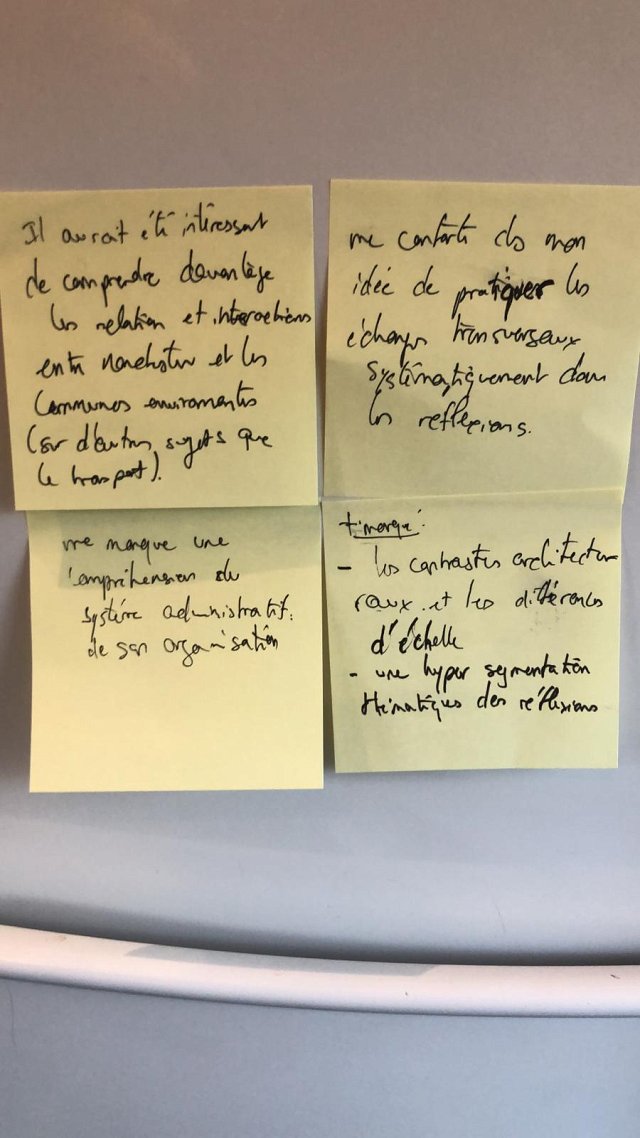 Il aurait été intéressant
de comprendre davantage
les relation et interactions
entre Manchester et les
communes environnantes
(sur d'autres sujets que
le transport).
me conforte ds mon
idée de pratiquer les
échanges transversaux
systématiquement dans
les reflexions.
me manque une
compréhension du
système administratif.
de son organisation
+ marqué :
- les contrastes architectu-
raux. et les différences
d'échelle
- une hyper segmentation
thématiques des réflexions